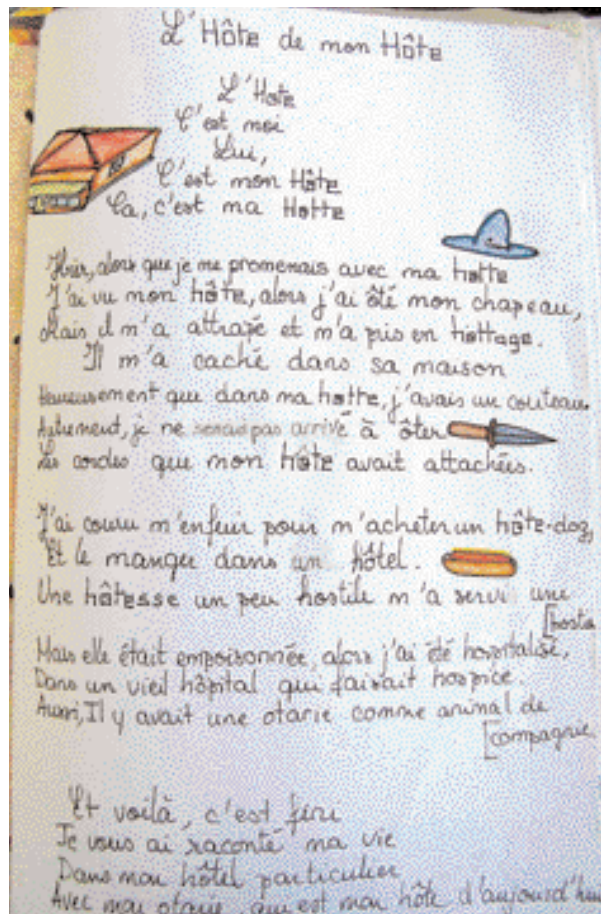 L'Hôte de mon Hôte
L'Hote
C'est moi
Lui,
C'est mon Hôte
Ça, c'est ma Hotte
Hier, alors que je me promenais avec ma hotte
J'ai vu mon hôte, alors j'ai ôté mon chapeau,
Mais il m'a attrapé et m'a pris en hottage.
Il m'a caché dans sa maison
Heureusement que dans ma hotte, j'avais un couteau.
Autrement, je ne serais pas arrivé à ôter
Les cordes que mon hôte avait attachées.
J'ai couru m'enfuir pour m'acheter un hôte-dog,
Et le manger dans un hôtel.
Une hôtesse un peu hostile m'a servi une
[hostie
Mais elle était empoisonnée, alors j'ai été hospitalisé,
Dans un vieil hôpital qui faisait hospice.
Aussi, Il y avait une otarie comme animal de
[compagnie
Et voilà, c'est fini
Je vous ai raconté ma vie
Dans mon hôtel particulier
Avec mon otarie, qui est mon hôte d'aujourd'hui